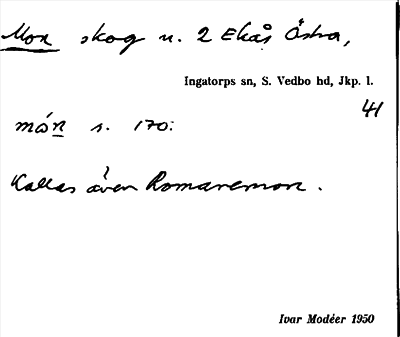 Mon skog n. 2 Ekås Östra,
Ingatorps sn, S. Vedbo hd, Jkp. l.
41
mán s. 170:
Kallas även Romaremon.
Ivar Modéer 1950